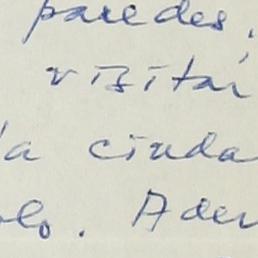 paredes.
visitar
la ciuda
olo. Adem